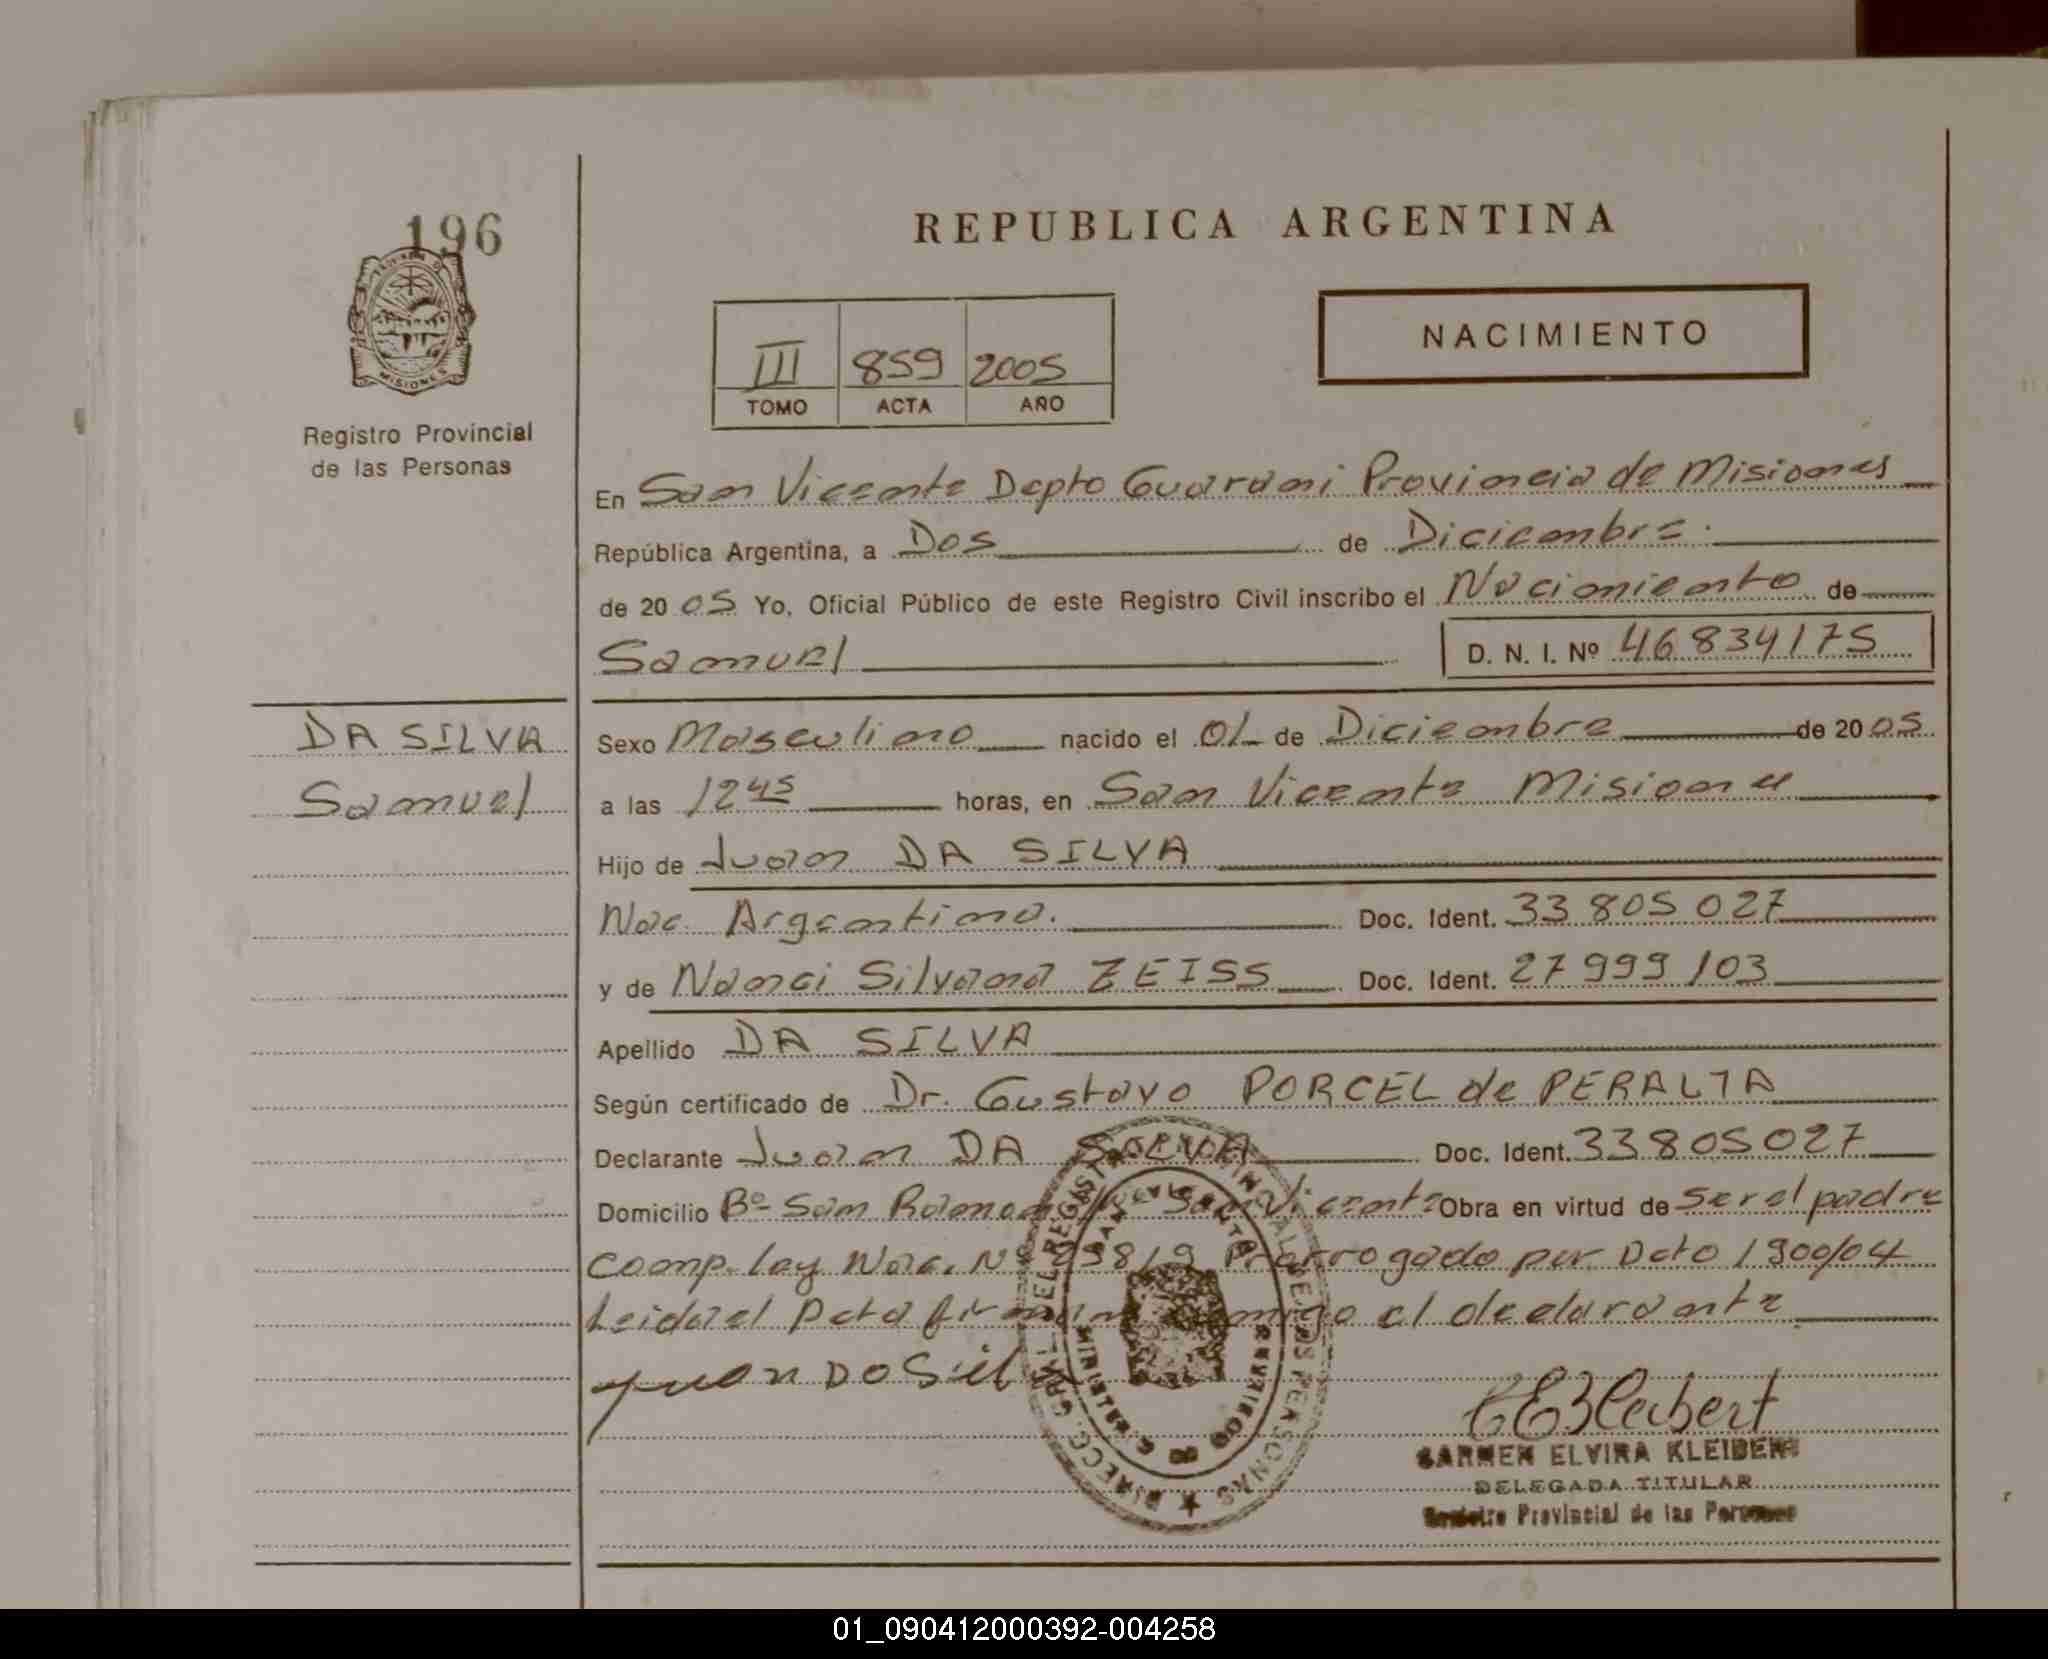 196
PROVINCIA DE
MISIONES
Registro Provincial
de las Personas
DA SILVA
Samuel
REPUBLICA ARGENTINA
III 859 2005
TOMO ACTA AÑO
NACIMIENTO
En San Vicente Depto Guarani Provincia de Misiones
República Argentina, a Dos de Diciembre
de 2005 Yo, Oficial Público de este Registro Civil inscribo el Nacimiento de
Samuel D. N. I. Nº 46834175
Sexo Masculino nacido el 01 de Diciembre de 2005
a las 12 45 horas, en San Vicente Misiones
Hijo de Juan DA SILVA
Nac. Argentina. Doc. Ident. 33 805 027
y de Nanci Silvana ZEISS Doc. Ident. 27 999 103
Apellido DA SILVA
Según certificado de Dr. Gustavo PORCEL de PERALTA
Declarante Juan DA SILVA Doc. Ident. 33805027
Domicilio Bº San Ramon San Vicente Obra en virtud de ser el padre
Comp. Ley Nac. Nº 25819 Prorrogado por Dcto 1900/04
Leida el Acta firman conmigo el declarante
Juan DO Sil
CEKleibert
CARMEN ELVIRA KLEIBERT
DELEGADA TITULAR
Registro Provincial de las Personas
01_090412000392-004258